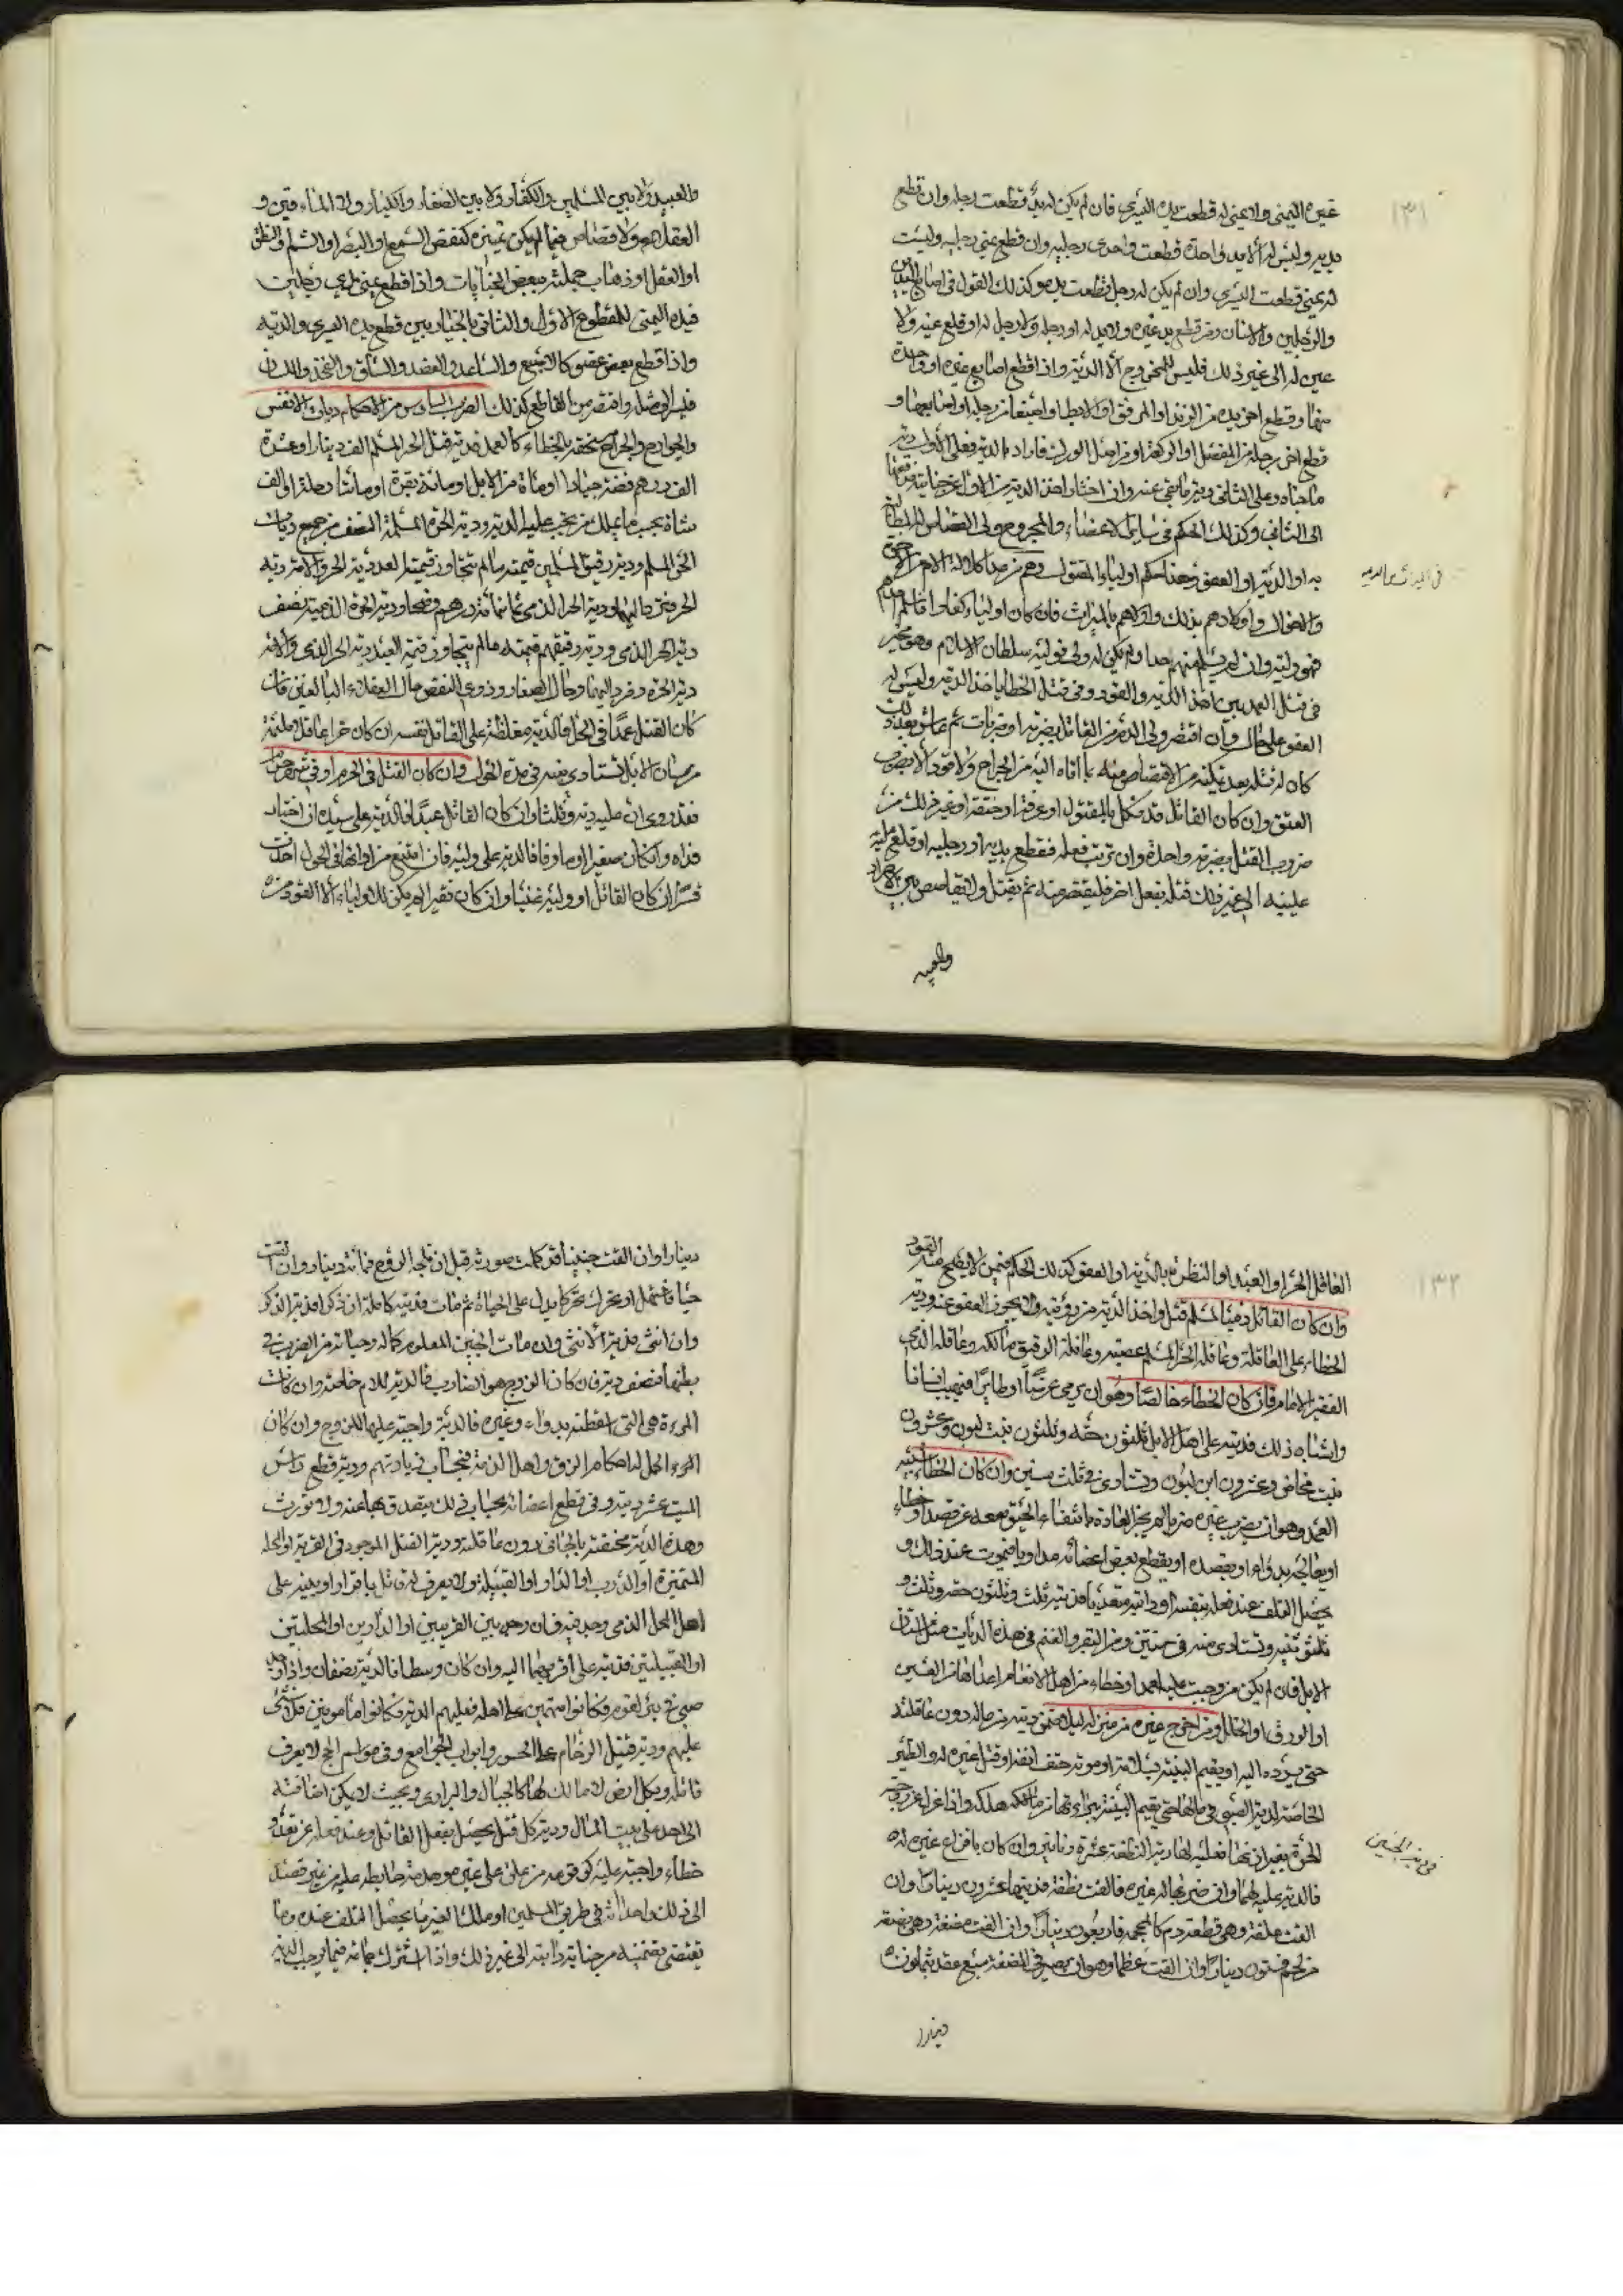 ١٣١
غيره اليمنى ولا يمنى له قطعت يده اليسرى فان لم يكن له يد قطعت رجله وان قطع
يديه وليس له الا يد واحدة قطعت واحدى رجليه وان قطع يمنى رجليه وليست
له يمنى قطعت اليسرى وان لم يكن له رجل قطعت يده وكذلك القول في اصابع اليدين
والرجلين والاسنان ومن قطع يد غيره ولا يد له او رجله ولا رجل له او قلع عينه ولا
عين له الى غير ذلك فليس للمجروح الا الدية واذا قطع اصابع غيره او واحدة
منها وقطع اخر يده من الزند او المرفق او الابط او اصبعا من رجله او اصابعها و
قطع اخر رجله من المفصل او الركبة او من اصل الورك فاراد الدية فعلى الاول دية
ما جناه وعلى الثاني دية ما بقي عنه وان اختار اخذ الدية من الاول عن جنايته
الى الثاني وكذلك الحكم في سائر الاعضاء والمجروح ولي القصاص المطالبة
به او الدية او العفو وهذا حكم اولياء المقتول وهم من عدا كلالة الام
والاخوال واولادهم بذلك واولاهم بالميراث فان كان اولياؤه كفارا فاسلم احدهم
فهو وليه وان لم يسلم منهم احد او لم يكن له ولي فوليه سلطان الاسلام وهو مخير
في قتل العمد بين اخذ الدية والقود وفي قتل الخطاء باخذ الدية وليس له
العفو على حال وان اقتص ولي الدم من القاتل بضربة او ضربات ثم عاش بعد ذلك
كان له قتله بعد تمكينه من الاقتصاص منه بما اتاه اليه من الجراح ولا قود الا بضرب
العنق وان كان القاتل قد نكل بالمقتول او غرقه او خنقه او غير ذلك من
ضروب القتل بضربة واحدة وان ترتب فعله فقطع يديه او رجليه او قلع
عينيه الى غير ذلك قتله بفعل اخر فليقتص منه ثم يقتل ولا تقاص بين الاحرار
والعبيد
والعبيد ولا بين المسلمين والكفار ولا بين الصغار والكبار ولا المأوفين و
العقلاء ولا قصاص فيما لم يكن تميزه كنقص السمع او البصر او الشم او النطق
او العقل او ذهاب جملته ببعض الجنايات واذا قطع يمنى يدي رجلين
فيده اليمنى للمقطوع الاول والثاني بالخيار بين قطع يده اليسرى والدية
واذا قطع بعض عضو كالاصبع والساعد والعضد والساق والفخذ واللسان
فليس له واقتص من القاطع كذلك الضرب السادس من الاحكام ديات الانفس
والجوارح والجراح كالعمد فدية قتل الحر المسلم الف دينار او عشرة
الف درهم فضة جيادا او مائة من الابل او مائة بقرة او مائتا حلة او الف
شاة بحسب ما يملك من يجب عليه الدية ودية الحرة المسلمة النصف من جميع ديات
الحر المسلم ودية رقيق المسلمين قيمته ما لم تتجاوز قيمة العبد دية الحر والامة دية
الحرة ودية الحر الذمي ثمانمائة درهم فضة ودية الحرة الذمية نصف
دية الحر الذمي ودية رقيقهم قيمته ما لم يتجاوز قيمة العبد دية الحر الذمي والامة
دية الحرة وحال الصغار وذوي النقص حال العقلاء البالغين فان
كان القتل عمدا في الحل فالدية مغلظة على القاتل نفسه ان كان حرا عاقلا مائة
من مسان الابل تستادى منه في مدة الحول وان كان القتل في الحرم او في شهر حرام
فقد روي ان عليه دية وثلثا وان كان القاتل عبدا فالدية على سيده ان اختار
فداه وان كان صغيرا او مأوفا فالدية على وليه فان امتنع من ادائها في الحول اخذت
قسرا ان كان القاتل او وليه غنيا وان كان فقيرا لم يكن للاولياء الا القود من
في الدية شبه
١٣٢
العاقل الحر او العبد او النظرة بالدية او العفو كذلك الحكم فيمن لا يصح منه القود
وان كان القاتل ذميا لمسلم قتل واخذ الدية من ورثته والا يجوز العفو عنه ودية
الخطاء على العاقلة وعاقلة الحر المسلم عصبته وعاقلة الرقيق مالكه وعاقلة الذمي
الفقير الامام فان كان الخطاء خالصا وهو ان يرمي غرضا او طايرا فيصيب انسانا
واشباه ذلك فديته على اهل الابل ثلثون حقة وثلثون بنت لبون وعشرون
بنت مخاض وعشرون ابن لبون وتستادى في ثلث سنين وان كان الخطاء شبيه
العمد وهو ان يضرب غيره ضربا لم يجر العادة بانتفاء الحيوة معه عن قصد او خطاء
او يعالجه بدواء او بفصده او يقطع بعض اعضائه مداويا فيموت عند ذلك و
يحصل التلف عند فعله بنفسه او دابته متعديا فديته ثلث وثلثون حقة وثلث و
ثلثون ثنية وتستادى منه في سنتين ومن البقر والغنم في هذه الديات مثل اسنان
الابل فان لم يكن من وجبت عليه لعمد او خطاء من اهل الانعام اخذ من العين
او الورق او الحلل ومن اخرج غيره من منزله ليلا ضمن ديته من ماله دون عاقلته
حتى يرده اليه او يقيم البينة بسلامته او موته حتف انفه او قتل غيره له والظئر
الخاصة لدية الصبي في مالها حتى يقيم البينة ببراءتها واذا عزل عن زوجته
الحرة بغير اذنها فعليه لها دية النطفة عشرة دنانير وان كان بافزاع غيره له
فالدية عليه لهما وان ضربها غيره فالقت نطفة فديتها عشرون دينارا وان
القت علقة وهي قطعة دم كالمحجمة فاربعون دينارا وان القت مضغة وهي بضعة
من لحم فستون دينارا وان القت عظما وهو ان يصير في المضغة سبع عقد فثمانون
دينارا
في دية الجنين
دينارا وان القت جنينا قد كملت صورته قبل ان تلجه الروح فمائة دينار وان القت
حيا فاستهل او تحرك تحركا يدل على الحياة ثم مات فديته كاملة ان ذكرا فدية الذكر
وان انثى فدية الانثى وان مات الجنين المعلوم كماله وحياته من الضرب في
بطنها فنصف ديته فان كان الزوج هو الضارب فالدية للام خاصة وان كانت
المرءة هي التي اسقطته بدواء وغيره فالدية واجبة عليها للزوج وان كان
ودية قطع راس
الميت عشر ديته وفي قطع اعضائه بحساب ذلك يتصدق بها عنه ولا تورث
وهذه الدية مختصة بالجاني دون عاقلته ودية القتيل الموجود في القرية او المحلة
المتميزة او الدرب او الدار او القبيلة ولا يعرف له قاتل باقرار او ببينة على
اهل المحل الذي وجد فيه فان وجد بين القريتين او الدارين او المحلتين
او القبيلتين فديته على اقربهما اليه وان كان وسطا فالدية نصفان واذا وجد
صبي في بئر لقوم فكانوا متهمين على اهله فعليهم الدية وان كانوا مامونين فلا شيء
عليهم ودية قتيل الزحام على الجسور وابواب الجوامع وفي مواسم الحج لا يعرف
قاتله وبكل ارض لا مالك لها كالجبال والبراري وبحيث لا يمكن اضافته
الى احد على بيت المال ودية كل قتل يحصل بفعل القاتل وعند فعله عن تعد و
خطاء واجبة عليه كوقوعه من علو على غيره من غير قصد
الى ذلك واحداثه في طريق المسلمين او ملك الغير ما يحصل التلف عنده وما
يقتضي تضمينه من جناية دابته الى غير ذلك واذا اشترك جماعة فيما يوجب الدية